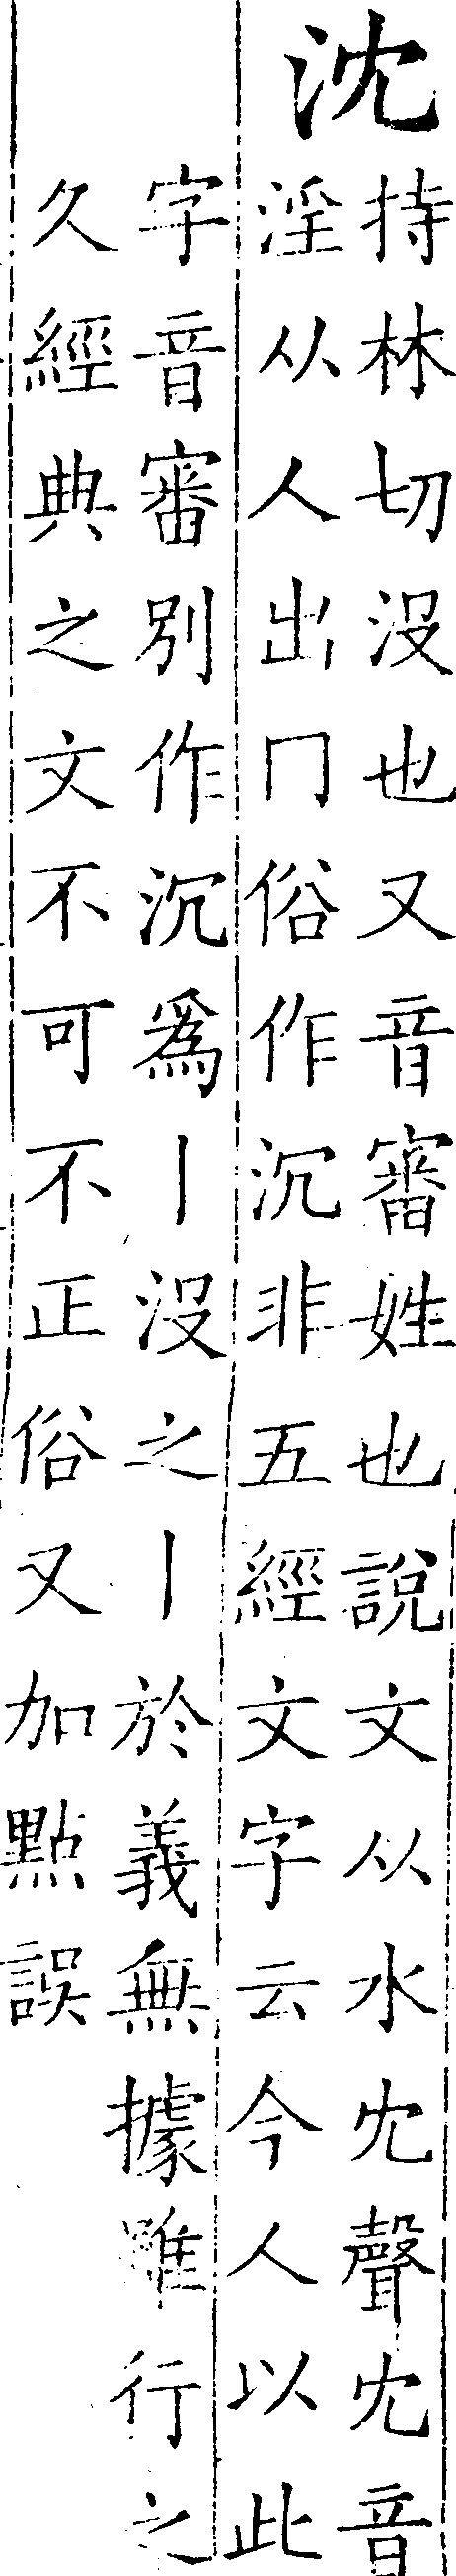 沈
持林切没也又音審姓也說文从水冘聲冘音
淫从人出冂俗作沉非五經文字云今人以此
字音審別作沉爲丨没之丨於義無據雖行之
久經典之文不可不正俗又加點誤